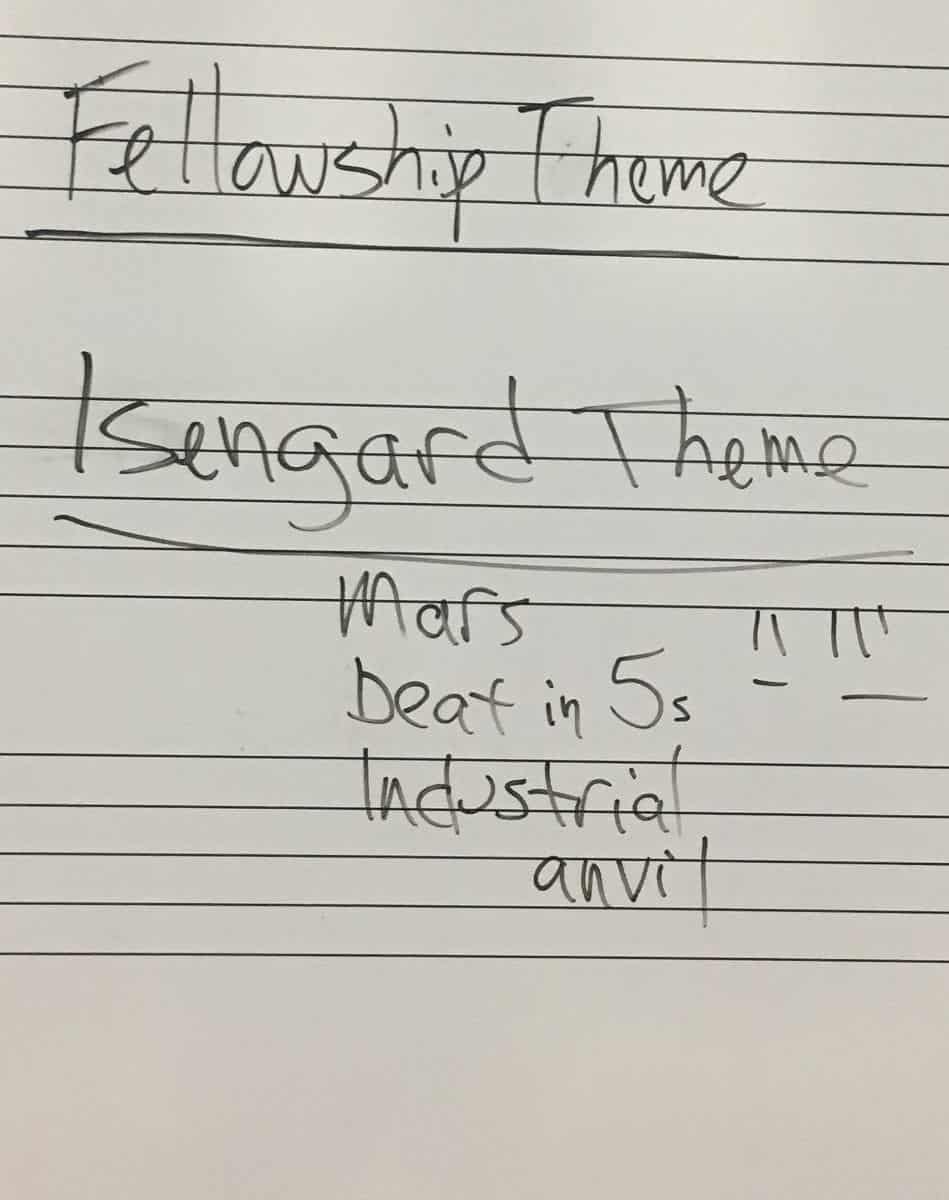 Fellowship Theme
Isengard Theme
Mars
beat in 5s
Industrial
anvil